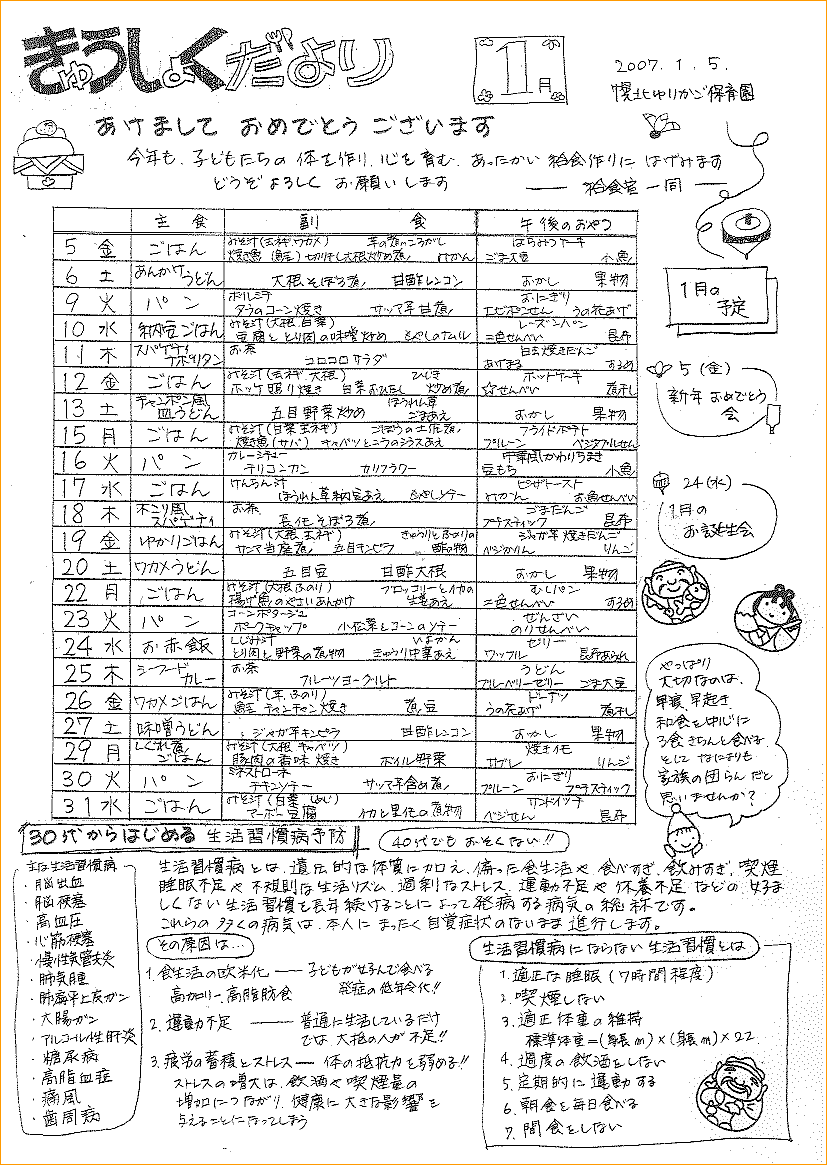 きゅうしょくだより
1月
2007. 1. 5.
幌北ゆりかご保育園
あけまして おめでとう ございます
今年も、子どもたちの 体を作り、心を育む、あったかい 給食作りに はげみます
どうぞ よろしく お願いします ── 給食室一同 ──
主食 副食 午後のおやつ
5 金 ごはん みそ汁(玉ネギ、ワカメ) 芋の煮ころがし はちみつケーキ
切り干し大根炒め煮 みかん ごま大豆 小魚
6 土 あんかけうどん 大根そぼろ煮 甘酢レンコン おかし 果物
9 火 パン ポトフ おにぎり
タラのコーン焼き サツマ芋甘煮 エビポンせん うの花あげ
10 水 納豆ごはん みそ汁(大根、白菜) レーズンパン
豆腐ととり肉の味噌炒め もやしのナムル 二色せんべい 昆布
11 木 スパゲティナポリタン お茶 白玉焼きだんご
コロコロサラダ あげまる するめ
12 金 ごはん みそ汁(玉ネギ、大根) ひじき ホットケーキ
ホッケ照り焼き 白菜おひたし 炒め煮 ☆せんべい 煮干し
13 土 チャンポン風皿うどん 五目野菜炒め ほうれん草ごまあえ おかし 果物
15 月 ごはん みそ汁(白菜、玉ネギ) ごぼうの土佐煮 フライドポテト
焼き魚(サバ) プルーン ベジタブルせん
16 火 パン クリームシチュー 中華風かわりちまき
カリフラワー 豆もち 小魚
17 水 ごはん けんちん汁 ピザトースト
ほうれん草納豆あえ もやしソテー みかん お魚せんべい
18 木 きこり風スパゲティ お茶 ごまだんご
長芋そぼろ煮 プチスティック 昆布
19 金 ゆかりごはん みそ汁(大根、玉ネギ) きゅうりとふのりの酢の物 ジャガ芋焼きだんご
サンマ当座煮 五目キンピラ ベジかりん りんご
20 土 ワカメうどん 五目豆 甘酢大根 おかし 果物
22 月 ごはん みそ汁(大根、ふのり) ブロッコリーとイカの生姜あえ むしパン
揚げ魚のやさいあんかけ 二色せんべい するめ
23 火 パン コーンポタージュ ぜんざい
ポークチャップ 小松菜とコーンのソテー のりせんべい
24 水 お赤飯 しじみ汁 いよかん ゼリー
とり肉と野菜の煮物 きゅうり中華あえ ワッフル 昆布あられ
25 木 シーフードカレー お茶 うどん
フルーツヨーグルト ブルーベリーゼリー ごま大豆
26 金 ワカメごはん みそ汁(芋、ふのり) ドーナツ
鮭チャンチャン焼き 煮豆 うの花あげ 煮干し
27 土 味噌うどん ジャガ芋キンピラ 甘酢レンコン おかし 果物
29 月 しぐれ煮ごはん みそ汁(大根、キャベツ) 焼きイモ
豚肉の香味焼き ボイル野菜 サブレ りんご
30 火 パン ミネストローネ おにぎり
チキンソテー サツマ芋含め煮 プルーン プチスティック
31 水 ごはん みそ汁(白菜、しめじ) サンドイッチ
マーボー豆腐 イカと里芋の煮物 ベジせん 昆布
1月の予定
5(金)
新年おめでとう会
24(水)
1月の
お誕生会
やっぱり
大切なのは、
早寝、早起き
和食を中心に
3食きちんと食べる
そして なによりも
家族の団らんだと
思いませんか?
30代からはじめる 生活習慣病予防
40代でも おそくない!!
主な生活習慣病
・脳出血
・脳梗塞
・高血圧
・心筋梗塞
・慢性気管支炎
・肺気腫
・肺扁平上皮ガン
・大腸ガン
・アルコール性肝炎
・糖尿病
・高脂血症
・痛風
・歯周病
生活習慣病とは、遺伝的な体質に加え、偏った食生活や、食べすぎ、飲みすぎ、喫煙
睡眠不足や不規則な生活リズム、過剰なストレス、運動不足や休養不足などの好ま
しくない生活習慣を長年続けることによって発病する病気の総称です。
これらの多くの病気は、本人にまったく自覚症状のないまま進行します。
その原因は…
1. 食生活の欧米化 ── 子どもが好んで食べる
高カロリー、高脂肪食 発症の低年令化!!
2. 運動不足 ── 普通に生活しているだけ
では、大抵の人が不足!!
3. 疲労の蓄積とストレス ── 体の抵抗力を弱める!!
ストレスの増大は、飲酒や喫煙量の
増加につながり、健康に大きな影響を
与えることになってしまう
生活習慣病にならない生活習慣とは
1. 適正な睡眠(7時間程度)
2. 喫煙しない
3. 適正体重の維持
標準体重=(身長m)×(身長m)×22
4. 過度の飲酒をしない
5. 定期的に運動する
6. 朝食を毎日食べる
7. 間食をしない